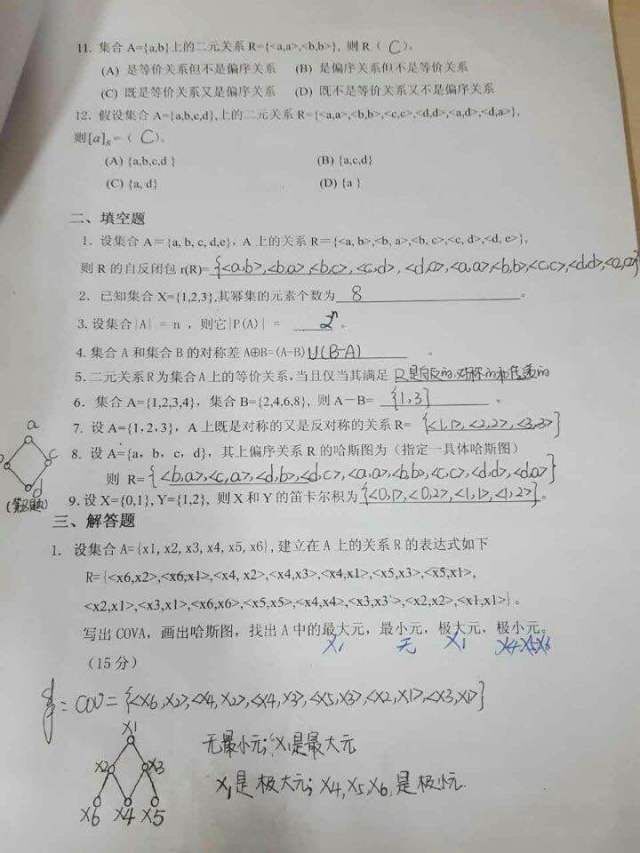 11. 集合A={a,b}上的二元关系R={<a,a>,<b,b>}, 则R( C )。
(A) 是等价关系但不是偏序关系 (B) 是偏序关系但不是等价关系
(C) 既是等价关系又是偏序关系 (D) 既不是等价关系又不是偏序关系
12. 假设集合A={a,b,c,d},上的二元关系R={<a,a>,<b,b>,<c,c>,<d,d>,<a,d>,<d,a>},
则[a]R=( C )。
(A) {a,b,c,d } (B) {a,c,d}
(C) {a, d} (D) {a }
二、填空题
1. 设集合A={a, b, c, d,e}, A上的关系R={<a, b>,<b, a>,<b, c>,<c, d>,<d, e>},
则R的自反闭包r(R)={<a,b>,<b,a>,<b,c>,<c,d>,<d,e>,<a,a>,<b,b>,<c,c>,<d,d>,<e,e>}
2. 已知集合X={1,2,3},其幂集的元素个数为 8 。
3. 设集合|A| = n , 则它|P(A)| = 2ⁿ 。
4. 集合A和集合B的对称差A⊕B=(A-B) U(B-A) 。
5. 二元关系R为集合A上的等价关系,当且仅当其满足 R是自反的,对称的和传递的
6. 集合A={1,2,3,4}, 集合B={2,4,6,8}, 则A-B= {1,3} 。
7. 设A={1,2,3}, A上既是对称的又是反对称的关系R= {<1,1>,<2,2>,<3,3>}
a
8. 设A={a, b, c, d}, 其上偏序关系R的哈斯图为(指定一具体哈斯图)
c
则 R={<b,a>,<c,a>,<d,b>,<d,c>,<a,a>,<b,b>,<c,c>,<d,d>,<d,a>}
d
(第8题)
9. 设X={0,1}, Y={1,2}, 则X和Y的笛卡尔积为{<0,1>,<0,2>,<1,1>,<1,2>}。
三、解答题
1. 设集合A={x1, x2, x3, x4, x5, x6},建立在A上的关系R的表达式如下
R={<x6,x2>,<x6,x1>,<x4, x2>,<x4,x3>,<x4,x1>,<x5,x3>,<x5,x1>,
<x2,x1>,<x3,x1>,<x6,x6>,<x5,x5>,<x4,x4>,<x3,x3>,<x2,x2>,<x1,x1>}。
写出COVA, 画出哈斯图, 找出A中的最大元, 最小元, 极大元, 极小元。
X1 无 X1 X4 X5 X6
(15分)
: COV={<X6,X2>,<X4,X2>,<X4,X3>,<X5,X3>,<X2,X1>,<X3,X1>}
X1
无最小元; X1是最大元
X2 X3
X1是极大元; X4,X5,X6是极小元.
X6 X4 X5